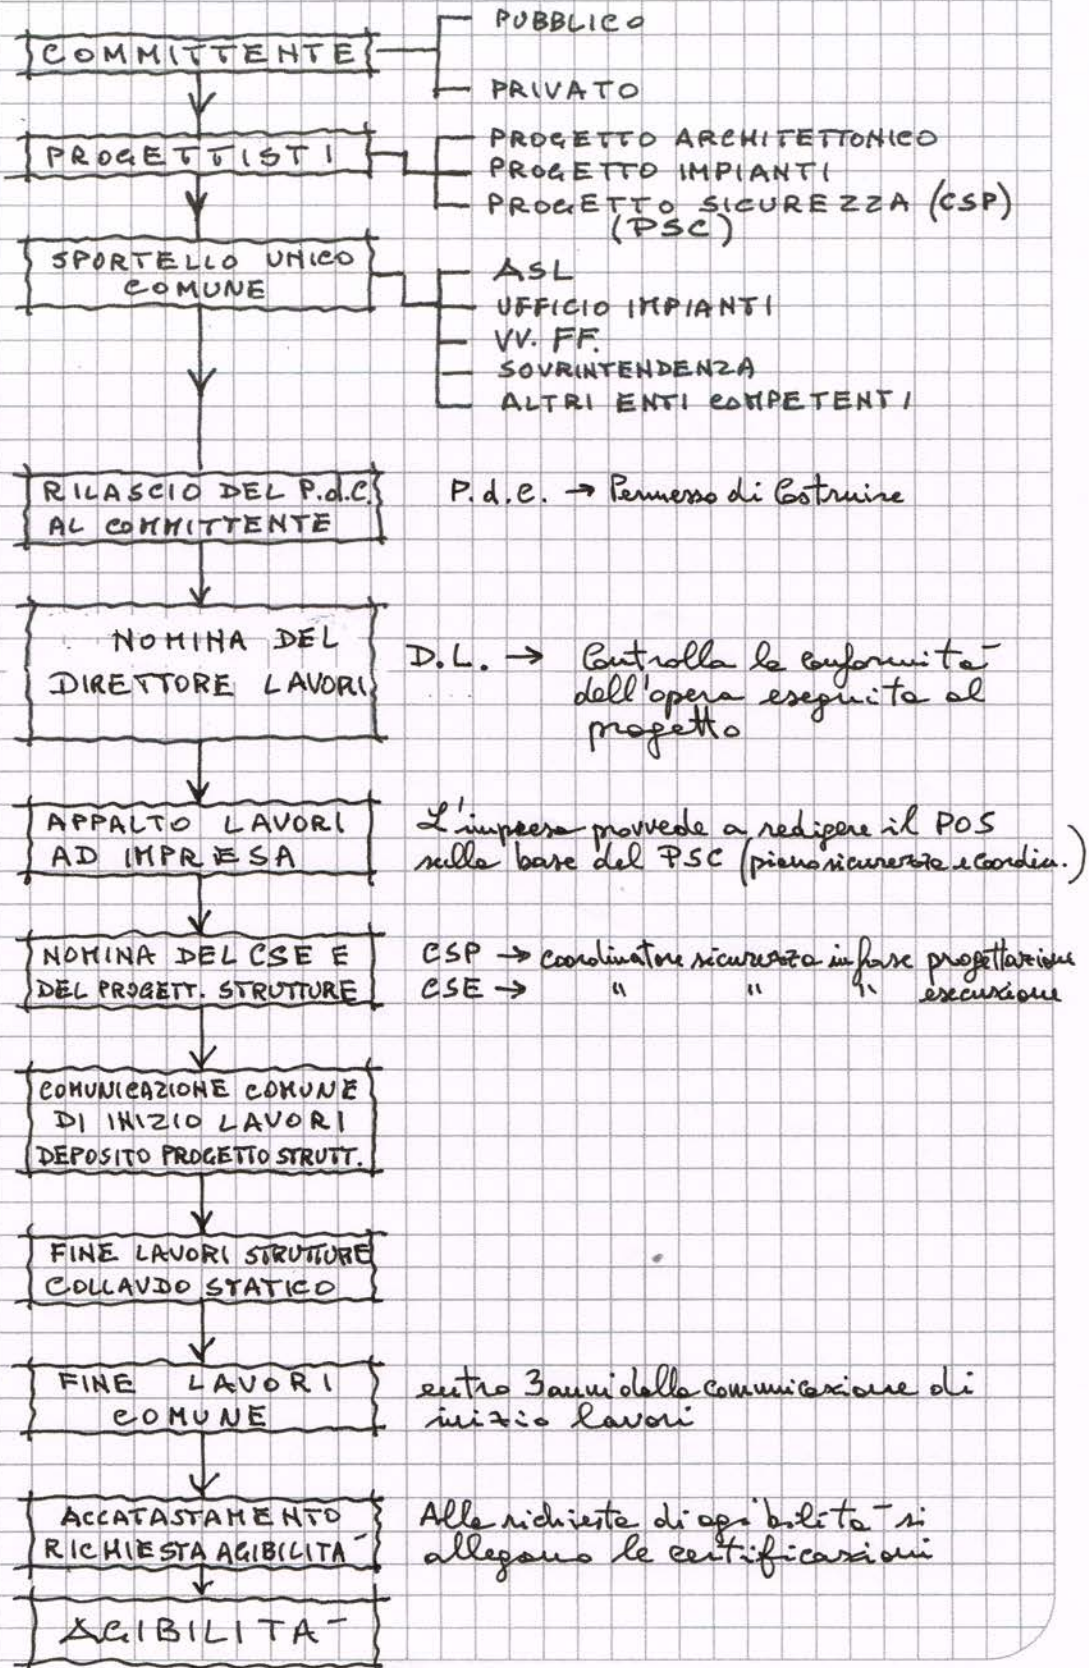 COMMITTENTE
PUBBLICO
PRIVATO
PROGETTISTI
PROGETTO ARCHITETTONICO
PROGETTO IMPIANTI
PROGETTO SICUREZZA (CSP)
(PSC)
SPORTELLO UNICO
COMUNE
ASL
UFFICIO IMPIANTI
VV. FF.
SOVRINTENDENZA
ALTRI ENTI COMPETENTI
RILASCIO DEL P.d.C.
AL COMMITTENTE
P.d.C. → Permesso di Costruire
NOMINA DEL
DIRETTORE LAVORI
D.L. → Controlla la conformità
dell'opera eseguita al
progetto
APPALTO LAVORI
AD IMPRESA
L'impresa provvede a redigere il POS
sulla base del PSC (piano sicurezza e coordin.)
NOMINA DEL CSE E
DEL PROGETT. STRUTTURE
CSP → coordinatore sicurezza in fase progettazione
CSE → " " " esecuzione
COMUNICAZIONE COMUNE
DI INIZIO LAVORI
DEPOSITO PROGETTO STRUTT.
FINE LAVORI STRUTTURE
COLLAUDO STATICO
FINE LAVORI
COMUNE
entro 3 anni dalla comunicazione di
inizio lavori
ACCATASTAMENTO
RICHIESTA AGIBILITÀ
Alla richiesta di agibilità si
allegano le certificazioni
AGIBILITÀ